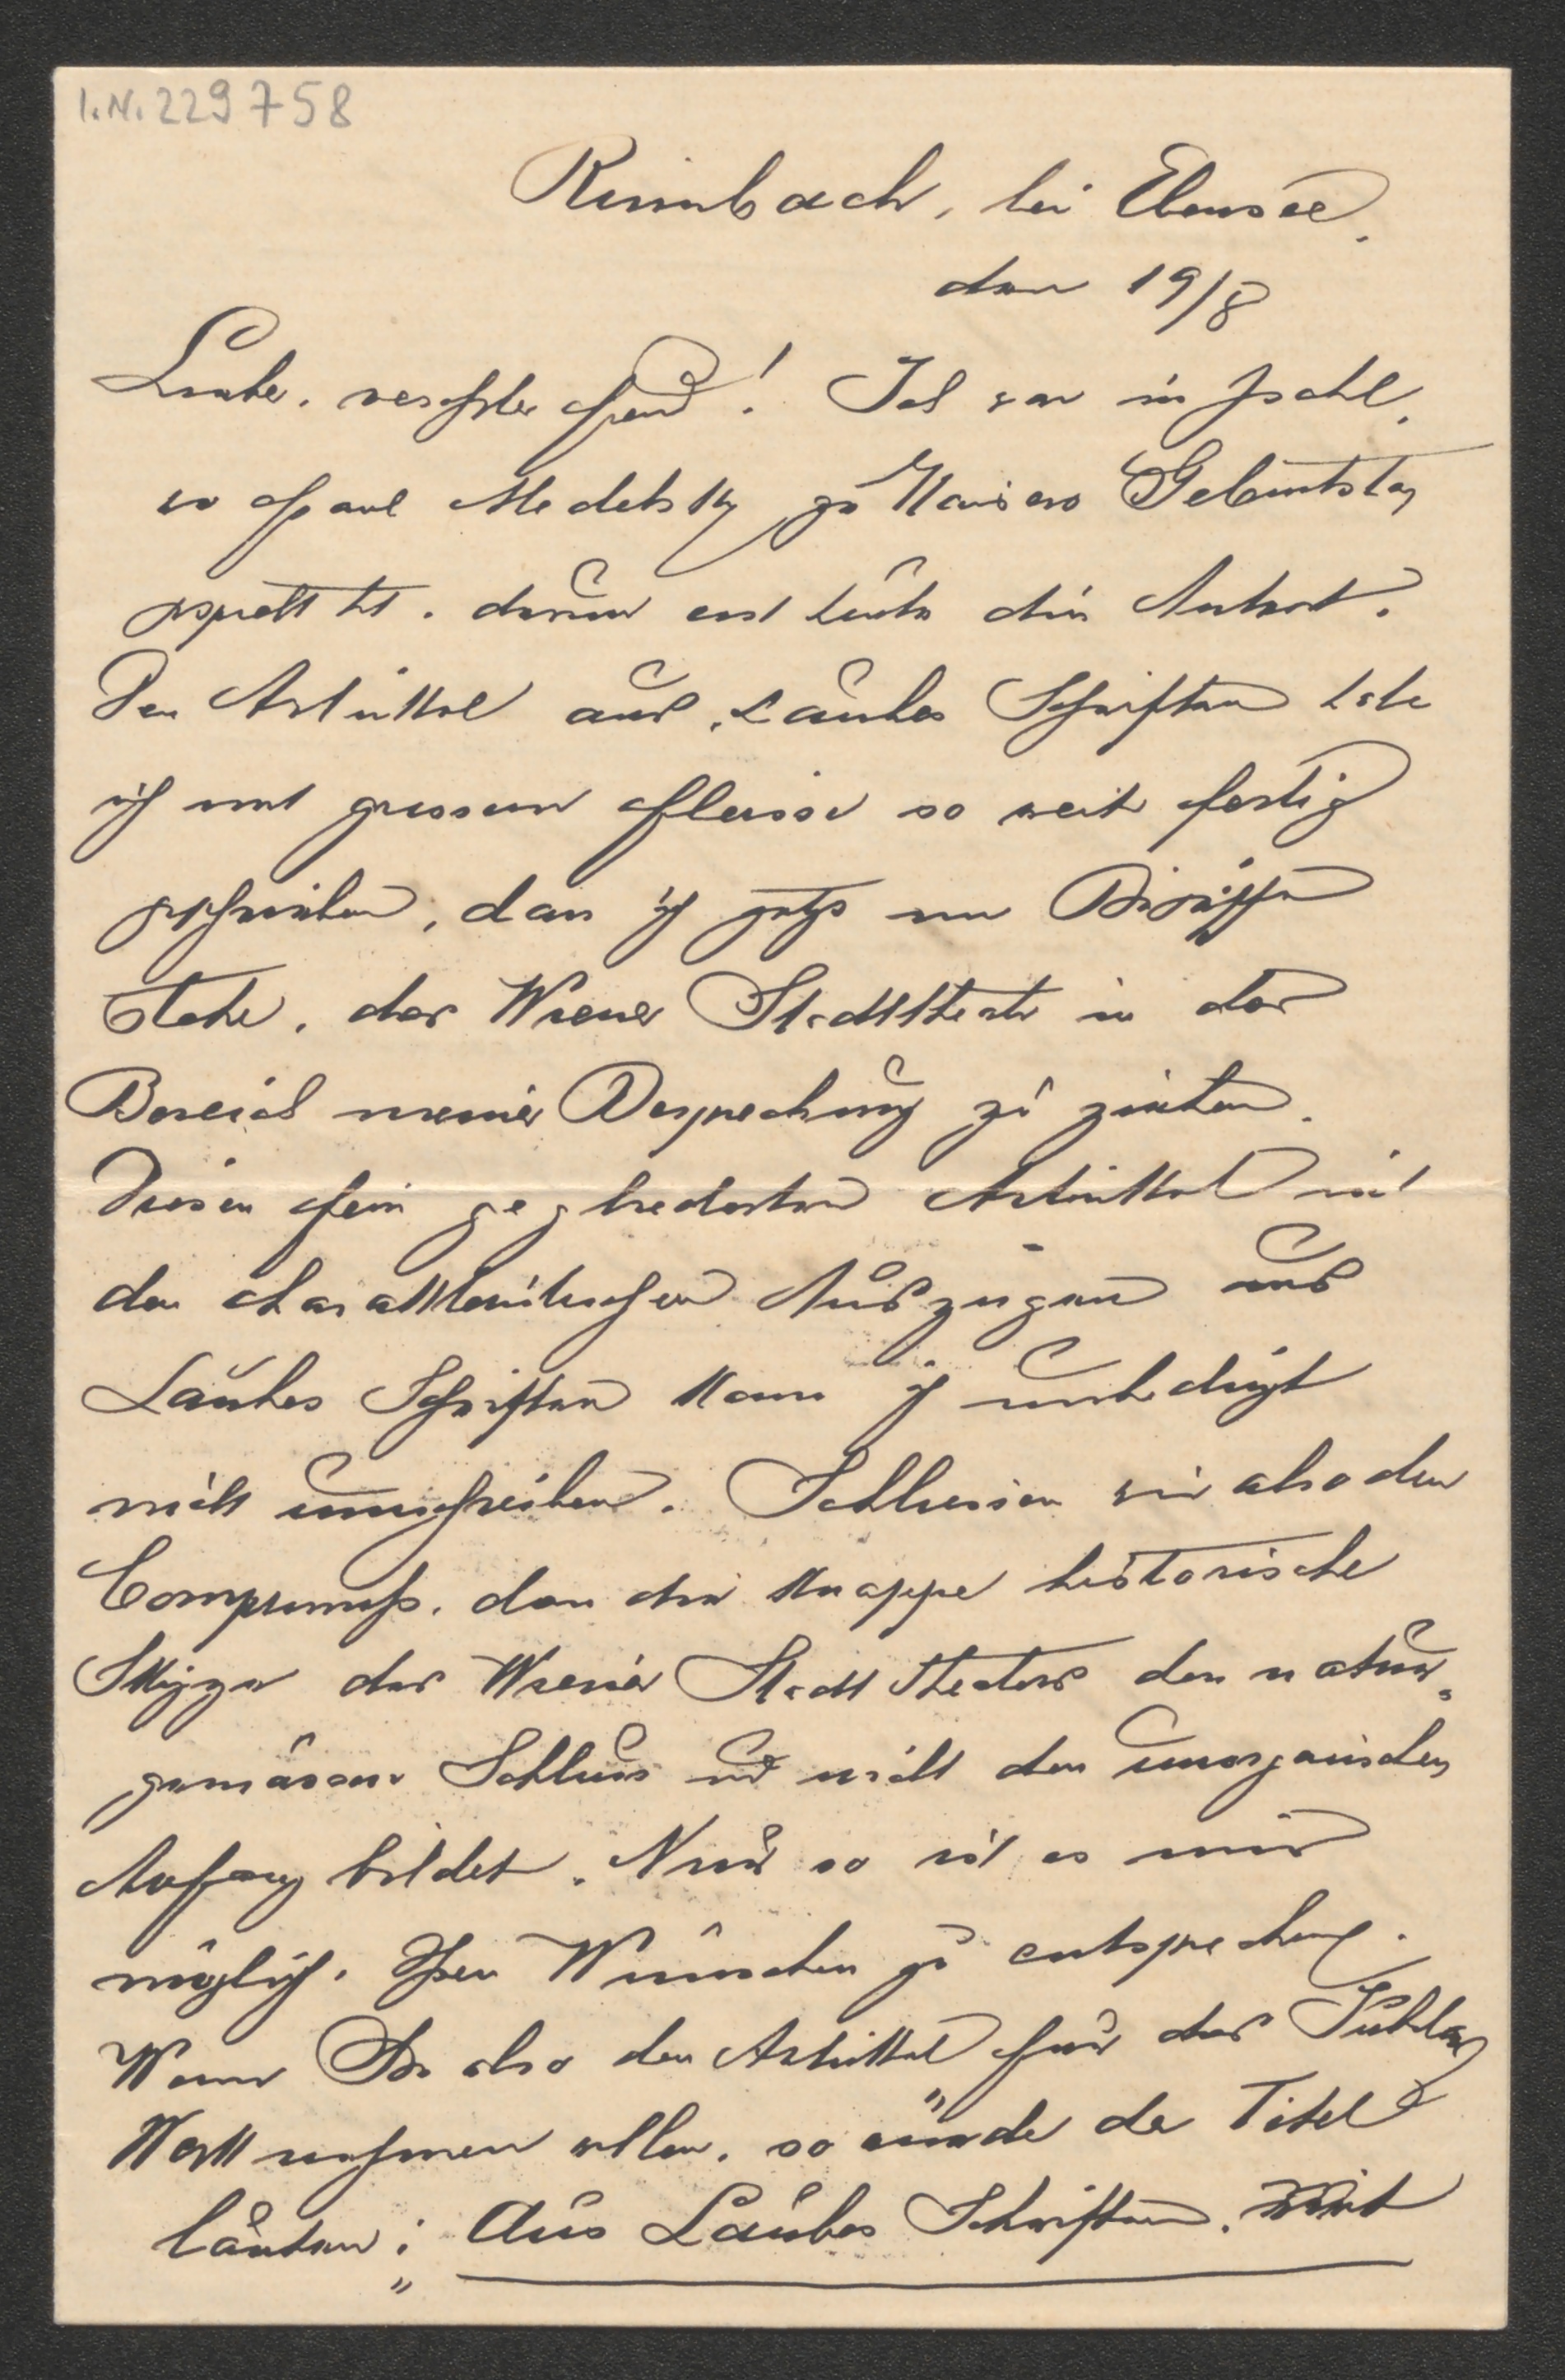 I.N. 229758
Rinnbach, bei Ebensee.
den 19/8
Lieber, verehrter Freund! Ich war in Ischl,
wo Frau Medelsky zu Kaisers Geburtstag
gespielt hat, darum erst heute die Antwort.
Den Artikkel aus Laubes Schriften habe
ich mit grossem Fleisse so weit fertig
geschrieben, dass ich jetzt im Begriffe
stehe, das Wiener Stadttheater in den
Bereich meiner Besprechung zu ziehen.
Diesen fein gegliederten Artikkel mit
den charakteristischen Auszügen aus
Laubes Schriften kann ich unbedingt
nicht umschreiben. Schliessen wir also den
Compromiss, dass die knappe historische
Skizze des Wiener Stadttheaters den natur-
gemässen Schluss und nicht den unorganischen
Anfang bildet. Nur so ist es mir
möglich, Ihren Wünschen zu entsprechen.
Wenn Sie also den Artikkel für das
nehmen wollen, so würde der Titel
lauten: „Aus Laubes Schriften, mit